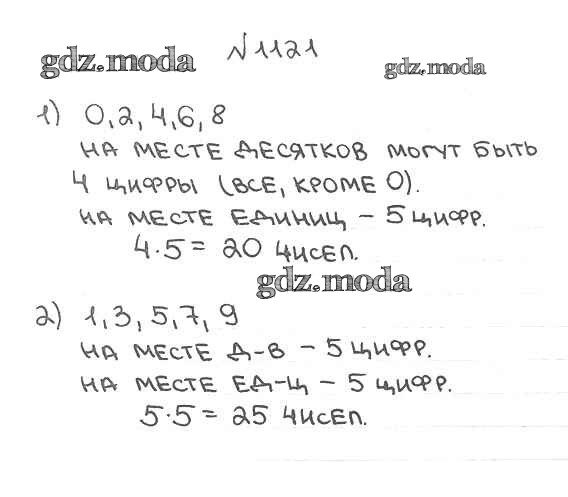 №1121
gdz.moda
gdz.moda
1) 0,2,4,6,8
НА МЕСТЕ ДЕСЯТКОВ МОГУТ БЫТЬ
4 ЦИФРЫ (ВСЕ, КРОМЕ 0).
НА МЕСТЕ ЕДИНИЦ – 5 ЦИФР.
4·5 = 20 ЧИСЕЛ.
gdz.moda
2) 1,3,5,7,9
НА МЕСТЕ Д-В – 5 ЦИФР.
НА МЕСТЕ ЕД-Ц – 5 ЦИФР.
5·5 = 25 ЧИСЕЛ.